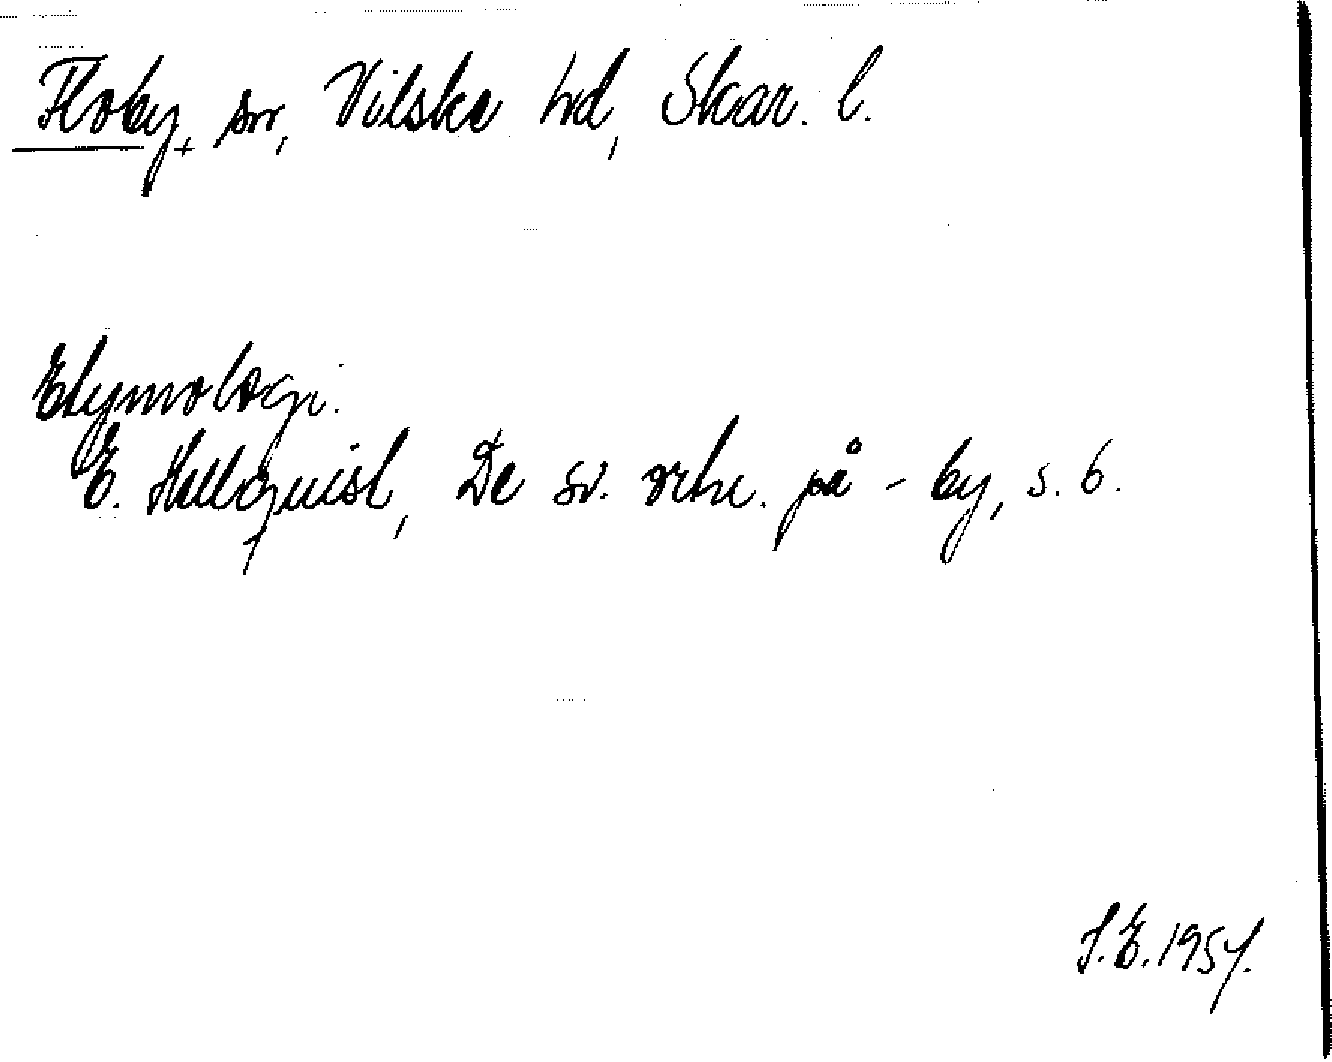 Floby, sn, Vilske hd, Skar. l.
Etymologi.
E. Hellquist, De sv. ortn. på -by, s. 6.
S.E. 1957.